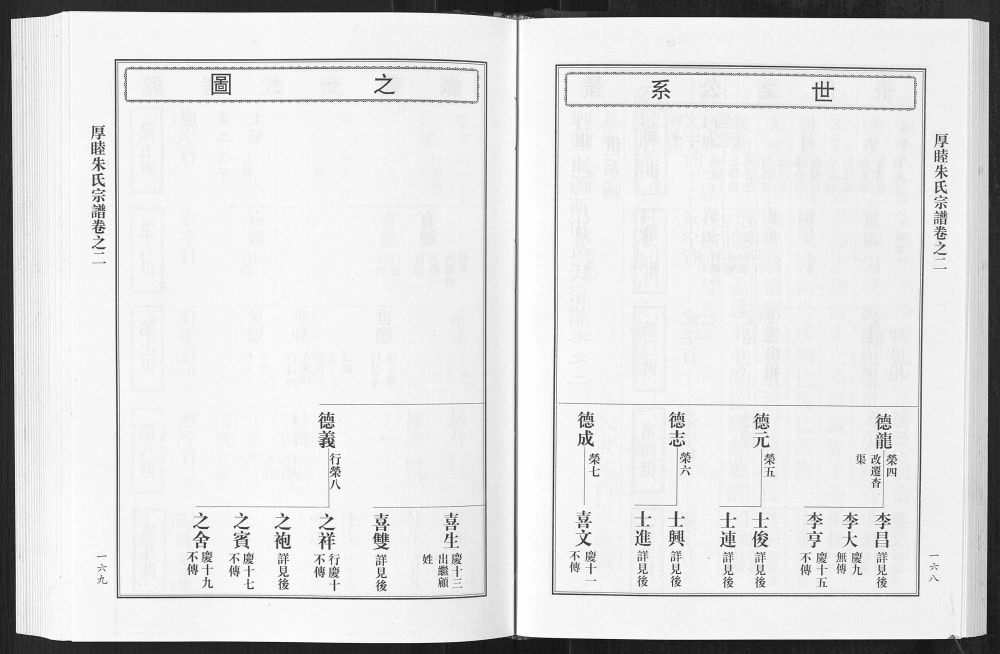 世系
厚睦朱氏宗譜卷之二
一六八
德龍
榮四
改遷杳
渠
德元
榮五
德志
榮六
德成
榮七
李昌
詳見後
李大
慶九
無傳
李亨
慶十五
不傳
士俊
詳見後
士連
詳見後
士興
詳見後
士進
詳見後
喜文
慶十一
不傳
之圖
德義
行榮八
喜生
慶十三
出繼顧
姓
喜雙
詳見後
之祥
行慶十
不傳
之袍
詳見後
之賓
慶十七
不傳
之舍
慶十九
不傳
厚睦朱氏宗譜卷之二
一六九